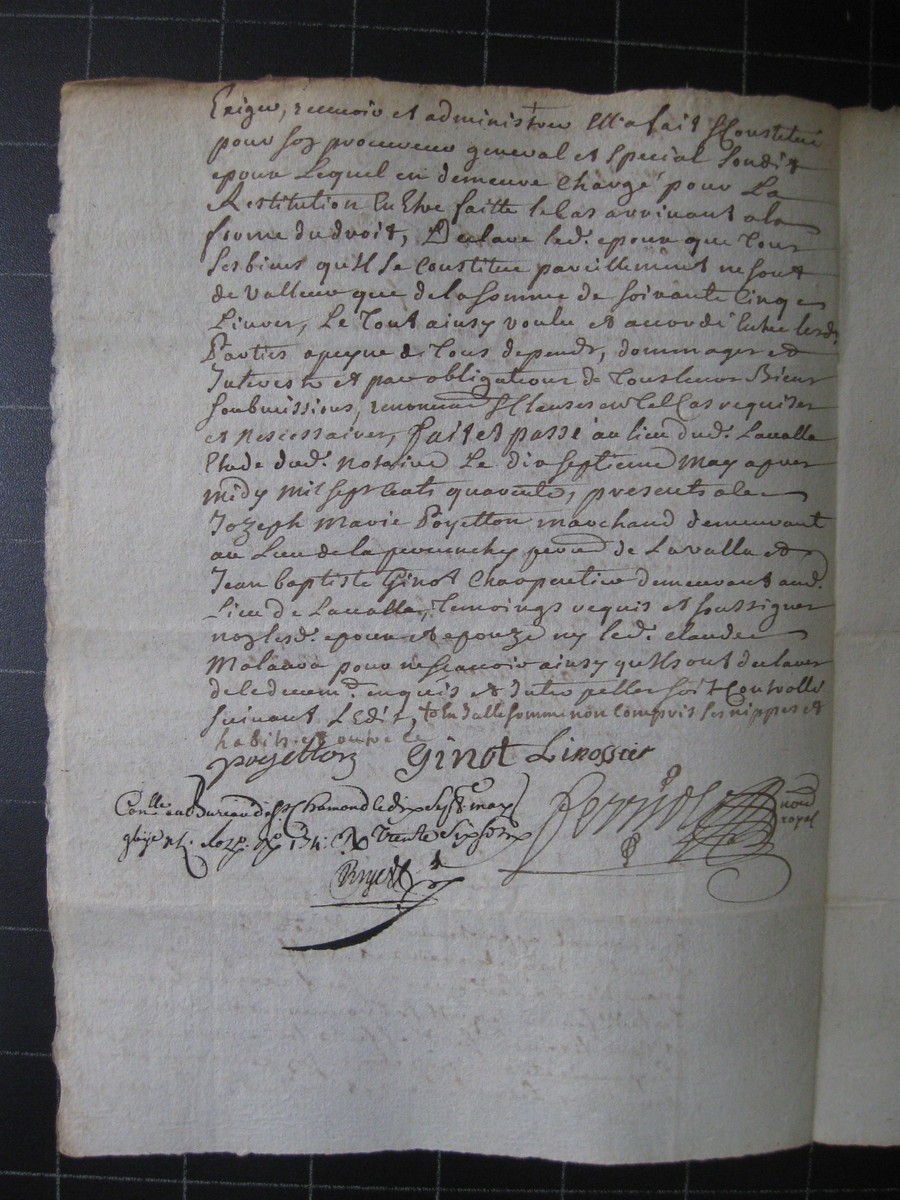 Exiger, recevoir et administrer Ell'a fait & Constitué
pour son procureur general et special Sondit
epoux Lequel en demeure chargé pour La
Restitution En Etre faitte le Cas arrivant a la
forme du droit, Declare led. epoux que Tour
Ses biens qu'Il Se Constitue pareillement ne sont
de Valleur que de la somme de soixante Cinq
Livres, Le Tout ainsy voulu et accordé Entre lesd.
Parties apeyne de Tous depends, dommages et
Interests et par obligations de Tous leurs Biens
Soubmissions, renoncia & Clauses
et Nescessaires, fait et passé au lieu dud. Lavalla
Etude dud. Notaire Le dix septieme May apres
midy mil sept cents quarente, presents a ce
Jozeph Marie Poyetton marchand demeurant
au Lieu de la de Lavalla et
Jean baptiste Ginot Charpentier demeurant aud.
Lieu de Lavalla, Temoings requis et soussignes
non lesd. epoux et epouze ny led. claude
Malaura pour ne scavoir ainsy qu'Ils ont declarer
de ce deuem. enquis et Interpeller soit Controllé
suivant L'Edit, La dalle somme non Compris ses nippes et
habits et outre ce
poyetton Ginot Linossier
Con.lle au Bureau de St Chamond le dix sept. may
Trente Six sols
not. royal